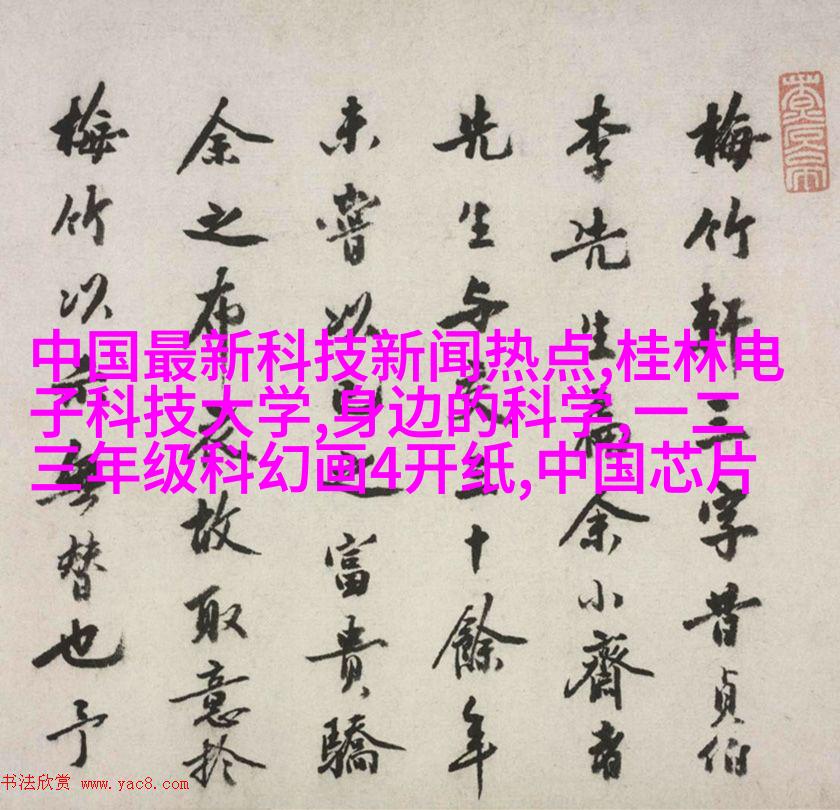 梅竹軒三字昔貞伯
李先生余小齋者
先生与三十餘年
未嘗以之富貴驕
余之布衣故取意於
梅竹以示無替也予
中国最新科技新闻热点,桂林电
子科技大学,身边的科学,一二
三年级科幻画4开纸,中国芯片
书法欣赏 www.yac8.com